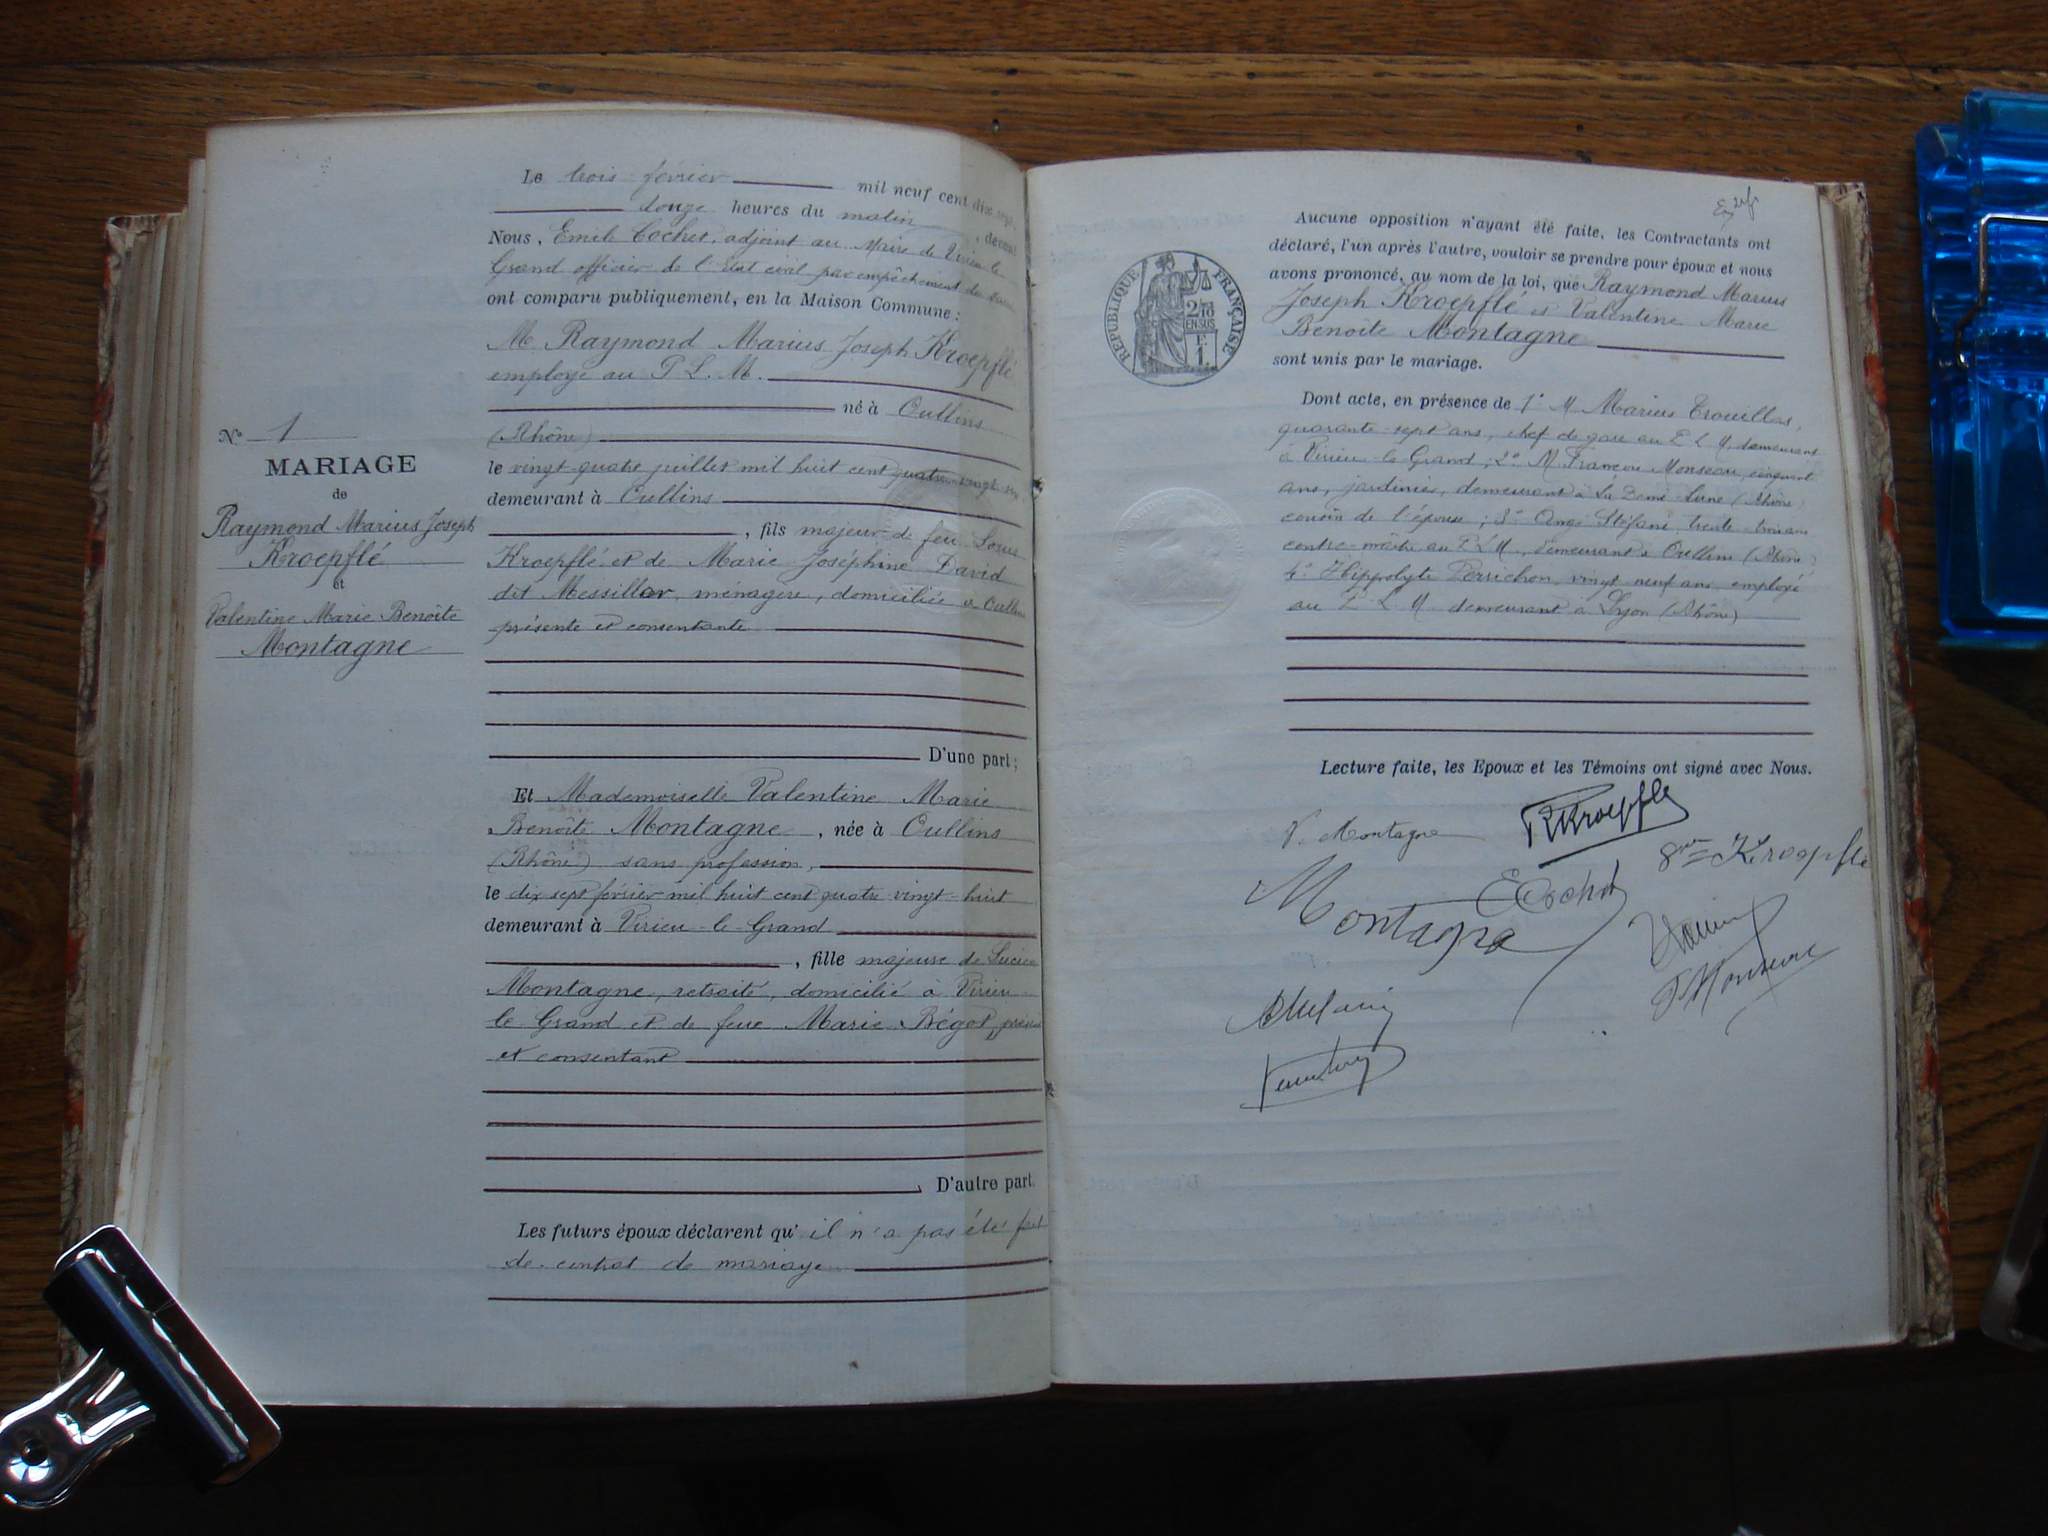 Le trois février mil neuf cent dix sept,
douze heures du matin, devant
Nous, Emile Cochet, adjoint au Maire de Virieu le
Grand officier de l'état civil par empêchement du
ont comparu publiquement, en la Maison Commune :
M. Raymond Marius Joseph Kroepflé
employé au P. L. M.
né à Oullins
(Rhône)
le vingt-quatre juillet mil huit cent quatre-vingt
demeurant à Oullins
, fils majeur de feu Louis
Kroepflé et de Marie Joséphine David
dit Messillar, ménagère, domiciliée à Oullins
présente et consentante
D'une part ;
N° 1
MARIAGE
de
Raymond Marius Joseph
Kroepflé
et
Valentine Marie Benoîte
Montagne
Et Mademoiselle Valentine Marie
Benoîte Montagne, née à Oullins
(Rhône) sans profession,
le dix sept février mil huit cent quatre vingt-huit
demeurant à Virieu-le-Grand
, fille majeure de Lucien
Montagne, retraité, domicilié à Virieu-
le Grand et de feue Marie Bégot, présent
et consentant
D'autre part.
Les futurs époux déclarent qu'il n'a pas été fait
de contrat de mariage
REPUBLIQUE FRANÇAISE
2/10
EN SUS
F
1.
Aucune opposition n'ayant été faite, les Contractants ont
déclaré, l'un après l'autre, vouloir se prendre pour époux et nous
avons prononcé, au nom de la loi, que Raymond Marius
Joseph Kroepflé et Valentine Marie
Benoîte Montagne
sont unis par le mariage.
Dont acte, en présence de 1° M Marius Trouillas,
quarante-sept ans, chef de gare au P. L. M. demeurant
à Virieu-le-Grand ; 2° M. François Monseau, cinquante
ans, jardinier, demeurant à La Demi-Lune (Rhône)
cousin de l'épouse ; 3° Ange Stéfani trente-trois ans
contre-maître au P L M, demeurant à Oullins (Rhône)
4° Hippolyte Perrichon, vingt neuf ans employé
au P. L. M. demeurant à Lyon (Rhône)
Lecture faite, les Epoux et les Témoins ont signé avec Nous.
V. Montagne
R Kroepflé
Kroepflé
Montagne
E Cochet